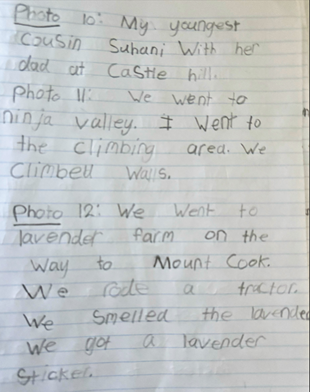 Photo 10: My youngest
Cousin Suhani With her
dad at Castle hill.
Photo 11: We went to
ninja valley. I Went to
the climbing area. We
Climbell Walls.
Photo 12: We Went to
lavender farm on the
Way to Mount Cook.
We rode a tractor.
We Smelled the lavender
We got a lavender
Sticker.